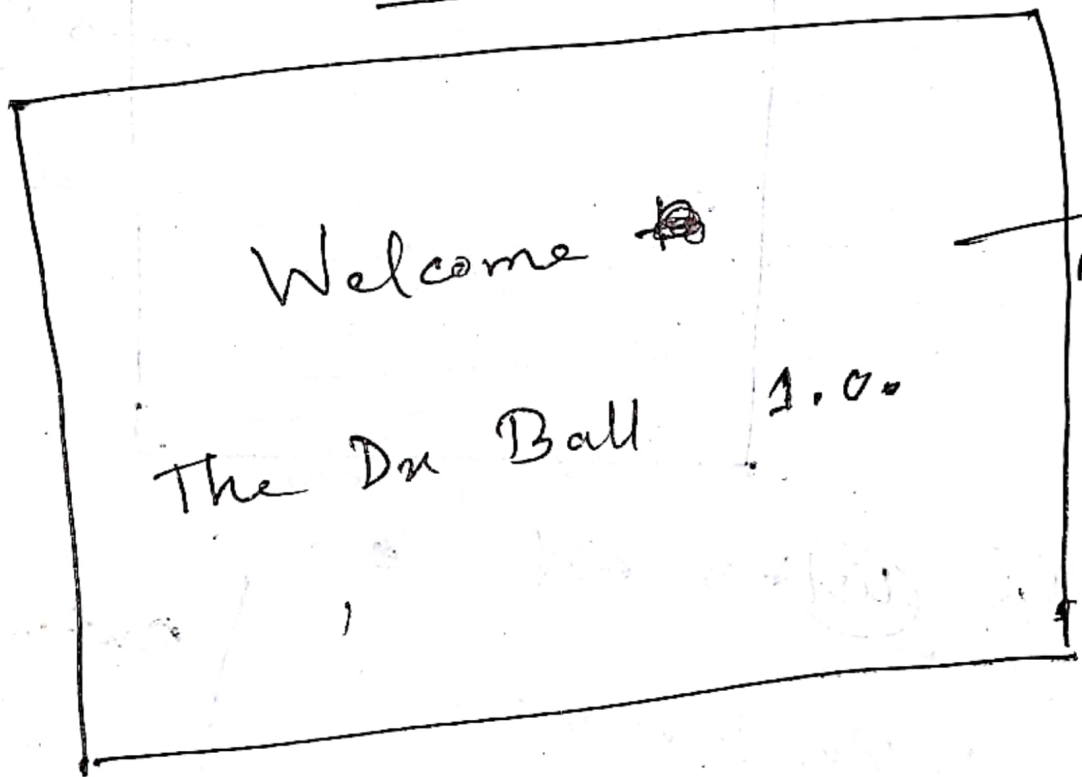 Welcome
The Dx Ball 1.0.